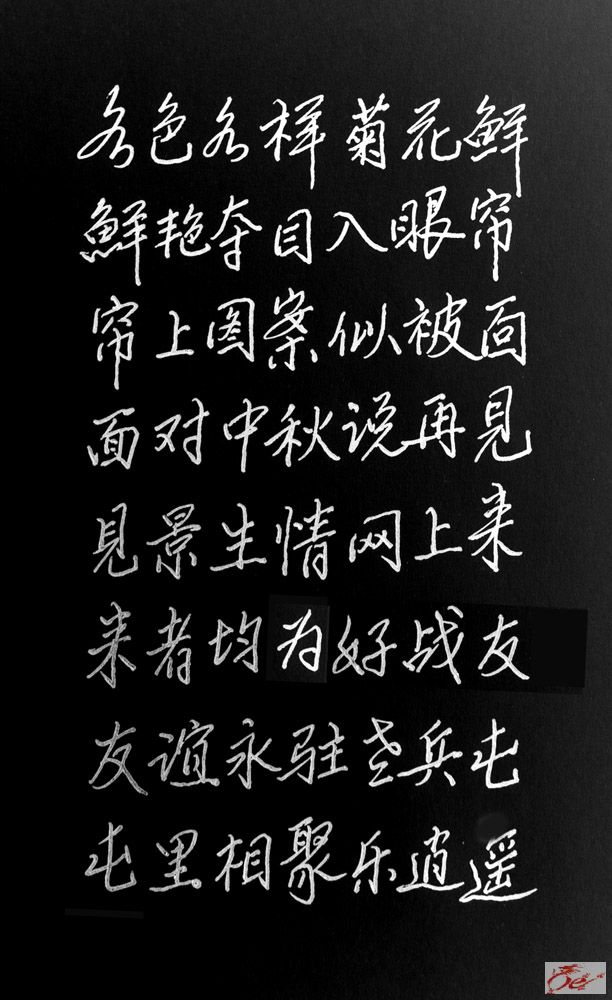 各色各样菊花鲜
鲜艳夺目入眼帘
帘上图案似被面
面对中秋说再见
见景生情网上来
来者均为好战友
友谊永驻老兵屯
屯里相聚乐逍遥